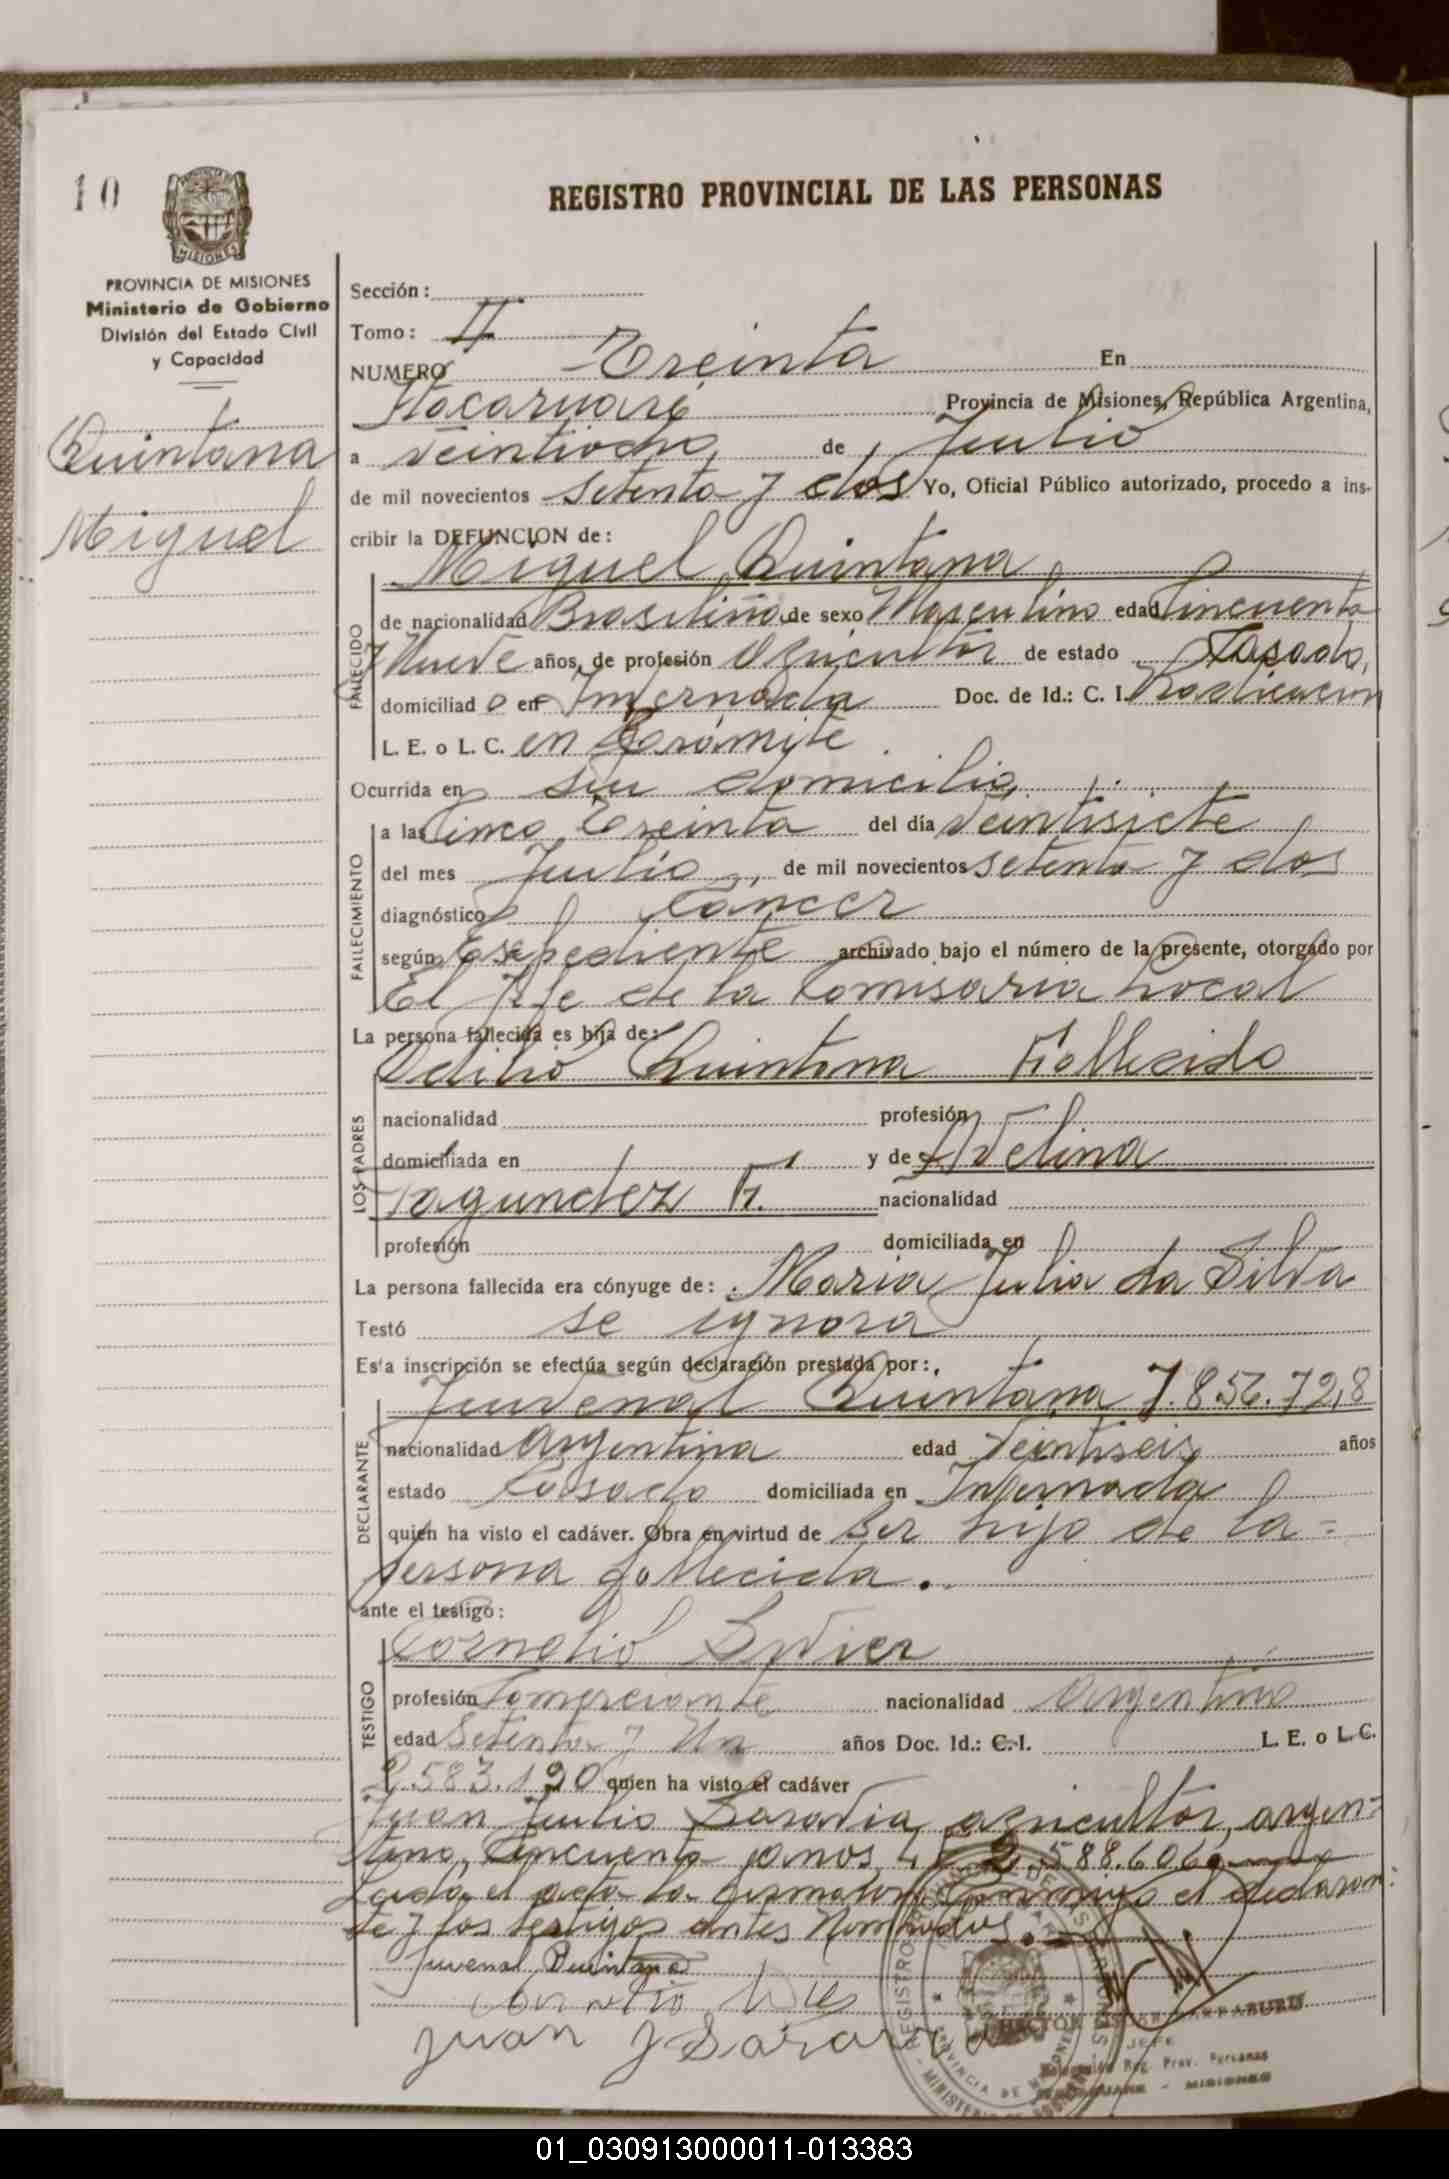 10
REGISTRO PROVINCIAL DE LAS PERSONAS
MISIONES
PROVINCIA DE MISIONES
Ministerio de Gobierno
División del Estado Civil
y Capacidad
Quintana
Miguel
Sección:
Tomo: II
NUMERO Treinta En
Itacaruaré Provincia de Misiones, República Argentina,
a veintiocho de Julio
de mil novecientos setenta y dos Yo, Oficial Público autorizado, procedo a ins-
cribir la DEFUNCION de:
Miguel Quintana
FALLECIDO
de nacionalidad Brasileña de sexo Masculino edad Cincuenta
y Nueve años, de profesión Agricultor de estado Casado,
domiciliado en Invernada Doc. de Id.: C. I. Radicacion
L. E. o L. C. en Trámite.
Ocurrida en su domicilio,
FALLECIMIENTO
a las Cinco Treinta del día Veintisiete
del mes Julio, de mil novecientos setenta y dos
diagnóstico Cáncer
según Expediente archivado bajo el número de la presente, otorgado por
El Jefe de la Comisaria Local
La persona fallecida es hija de:
LOS PADRES
Odilio Quintana Fallecido
nacionalidad profesión
domiciliada en y de Avelina
Fagundez F. nacionalidad
profesión domiciliada en
La persona fallecida era cónyuge de: Maria Julia da Silva
Testó se ignora
Esta inscripción se efectúa según declaración prestada por:
DECLARANTE
Juvenal Quintana 7.856.728
nacionalidad Argentina edad Veintiseis años
estado Casado domiciliada en Invernada
quien ha visto el cadáver. Obra en virtud de ser hijo de la-
persona fallecida.
ante el testigo:
TESTIGO
Cornelio
profesión Comerciante nacionalidad Argentino
edad Setenta y Un años Doc. Id.: C.I. L. E. o L.C.
2.583.120 quien ha visto el cadáver
Juan Julio Saravia, agricultor, argen-
tino, Cincuenta años, L E 2.588.606
Leida el acta la firmaron Conmigo el declaran-
te y los testigos antes Nombrados.
Juvenal Quintana
Cornelio
Juan J Saravia
JEFE
Delegación Reg. Prov. Personas
MISIONES
01_030913000011-013383